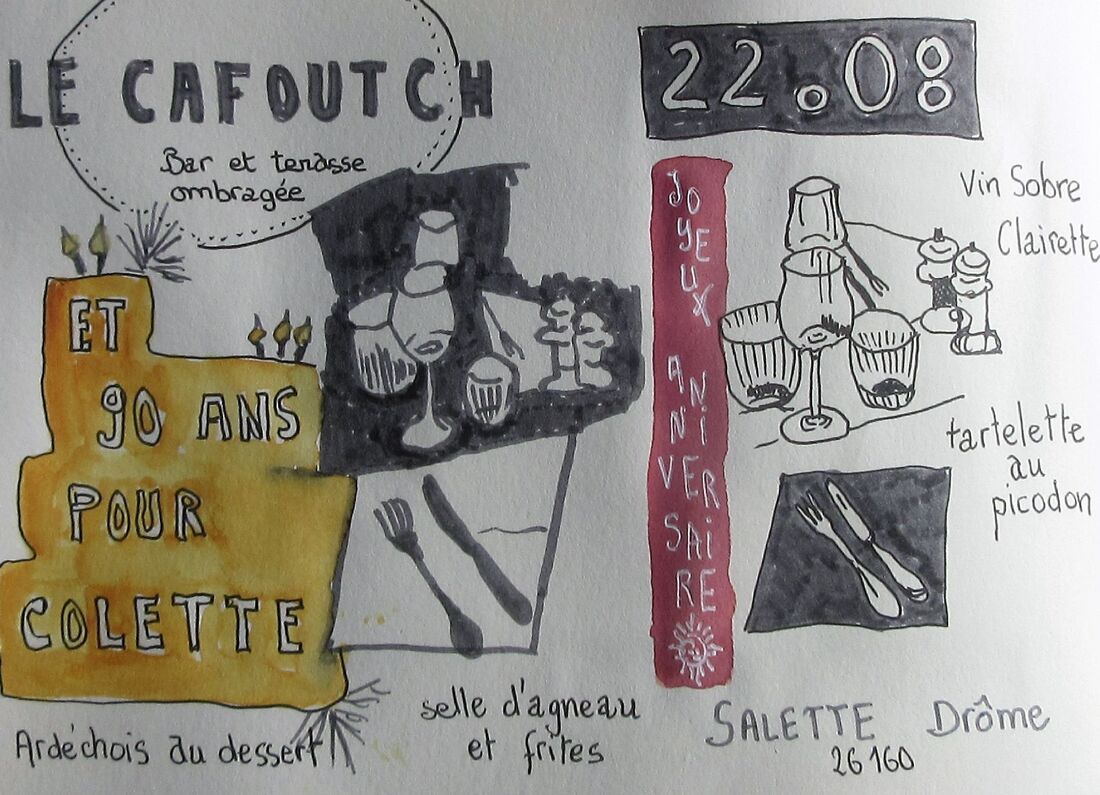 LE CAFOUTCH
Bar et terasse
ombragée
22.08
JOYEUX ANNIVERSAIRE
Vin Sobre
Clairette
tartelette
au
picodon
ET
90 ANS
POUR
COLETTE
Ardéchois au dessert
selle d'agneau
et frites
SALETTE Drôme
26160